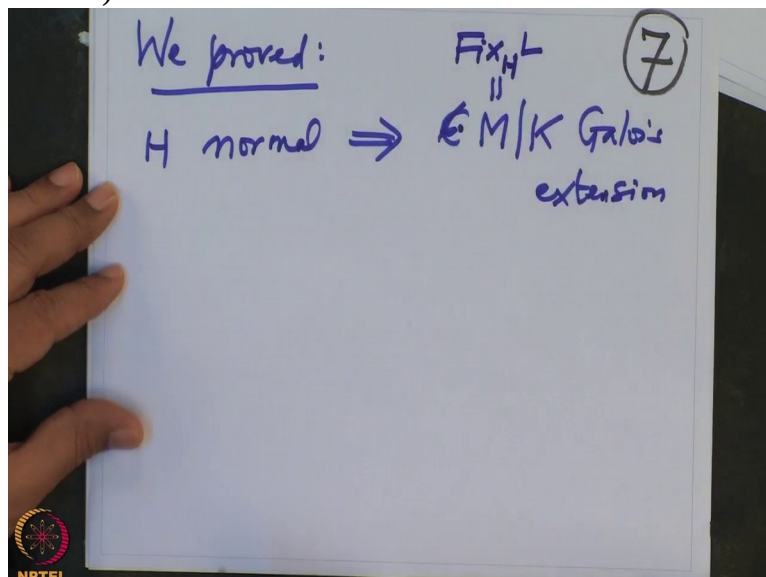 We proved:
Fix_H L
7
||
H normal ⇒ M/K Galois
extension
NPTEL